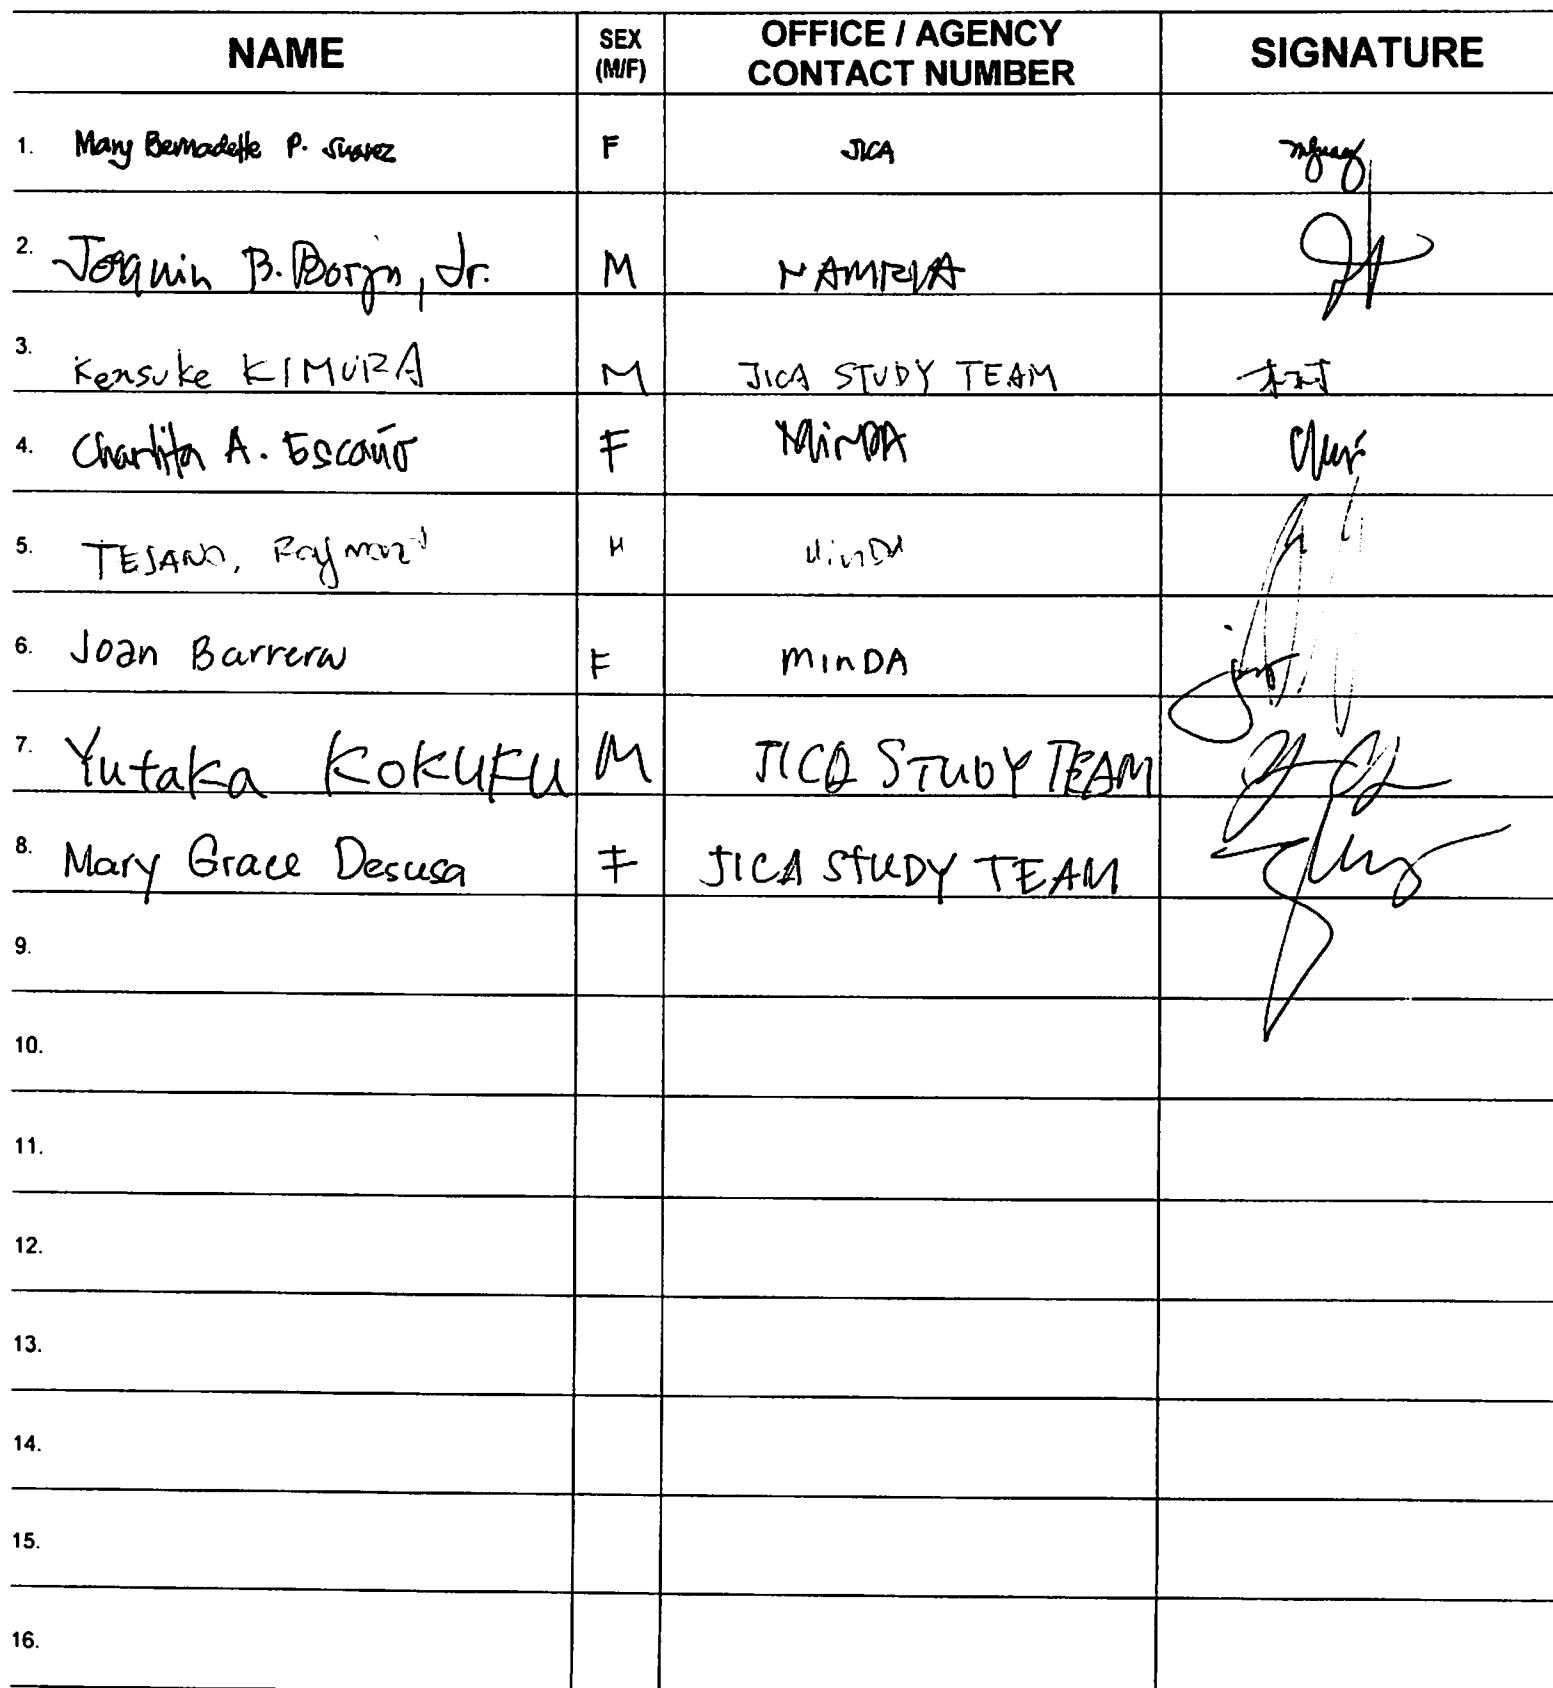 NAME SEX (M/F) OFFICE / AGENCY CONTACT NUMBER SIGNATURE
1. Mary Bernadette P. Suarez F JICA
2. Joaquin B. Borja, Jr. M NAMRIA
3. Kensuke KIMURA M JICA STUDY TEAM 木村
4. Charlita A. Escaño F MinDA
5. TEJANO, Raymond M MinDA
6. Joan Barrera F MinDA
7. Yutaka KOKUFU M JICA STUDY TEAM
8. Mary Grace Desusa F JICA STUDY TEAM
9.
10.
11.
12.
13.
14.
15.
16.